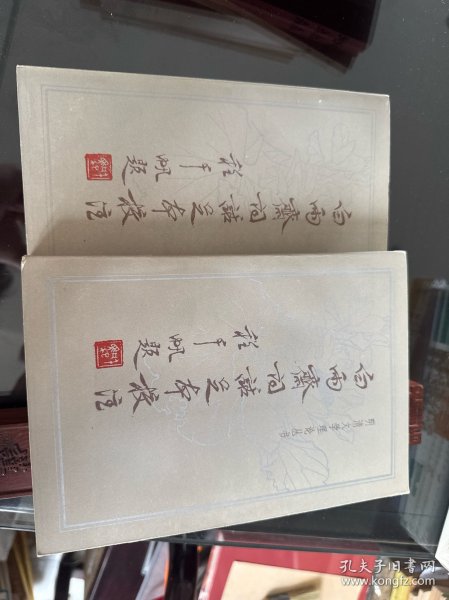 白雨齋詞話足本校注
程千帆題
明清文學理論丛书
白雨齋詞話足本校注
程千帆題
孔夫子旧书网
www.kongfz.com